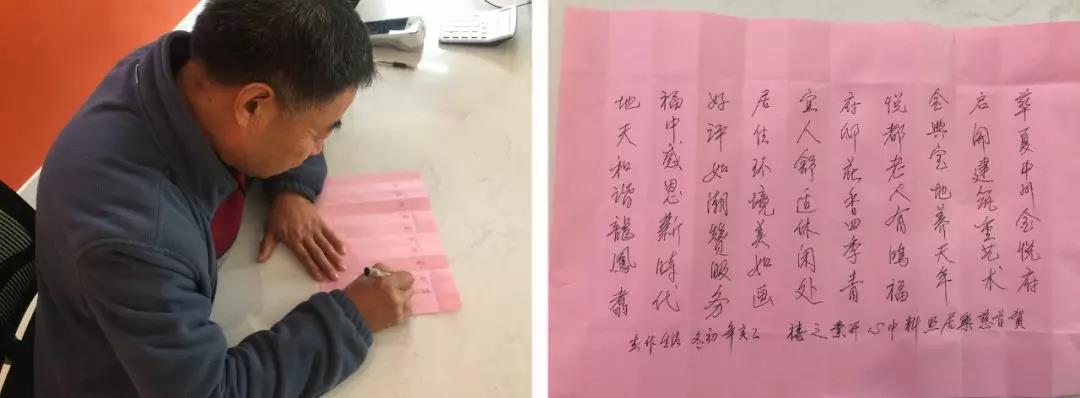 華夏中州金悦府
启用建筑重艺术
金典宝地养天年
悦都老人有鸿福
府邸花香四季青
宜人舒适休闲处
居住环境美如画
好评如潮赞服务
福中感恩新时代
地天和谐龍鳳翥
賀首慈樂居照料中心开業之禧 己亥年初冬